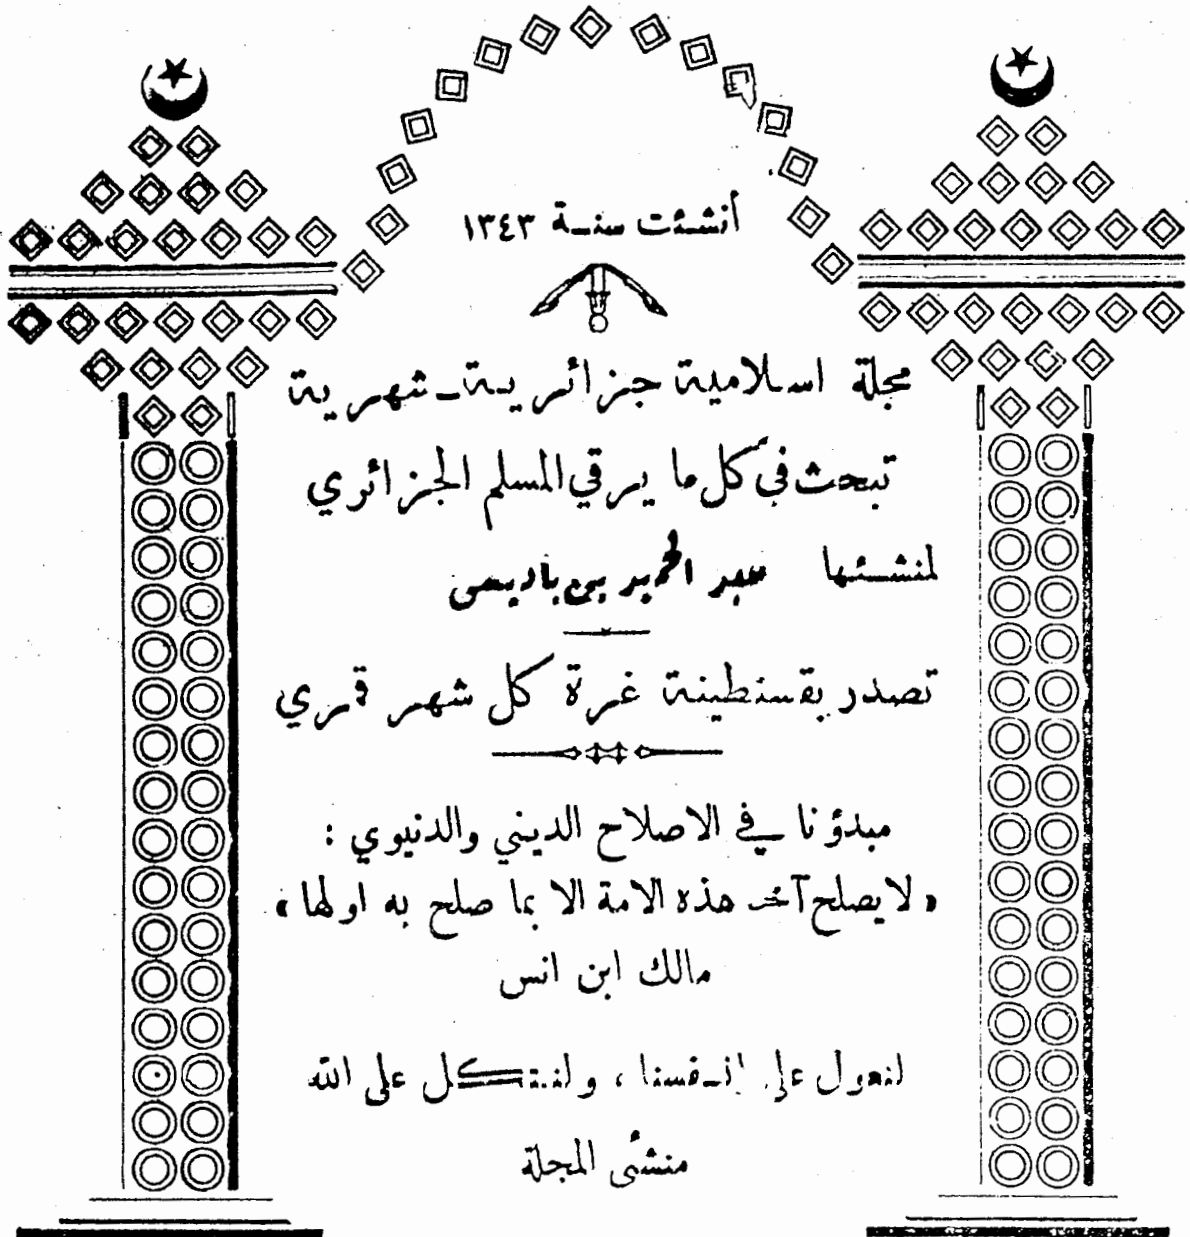 أنشئت سنة ١٣٤٣
مجلة اسلامية جزائرية - شهرية
تبحث في كل ما يرقي المسلم الجزائري
لمنشئها عبد الحميد بن باديس
تصدر بقسنطينة غرة كل شهر قمري
مبدؤنا في الاصلاح الديني والدنيوي :
« لا يصلح آخر هذه الامة الا بما صلح به اولها »
مالك ابن انس
لنعول على انفسنا ، ولنتكل على الله
منشئ المجلة